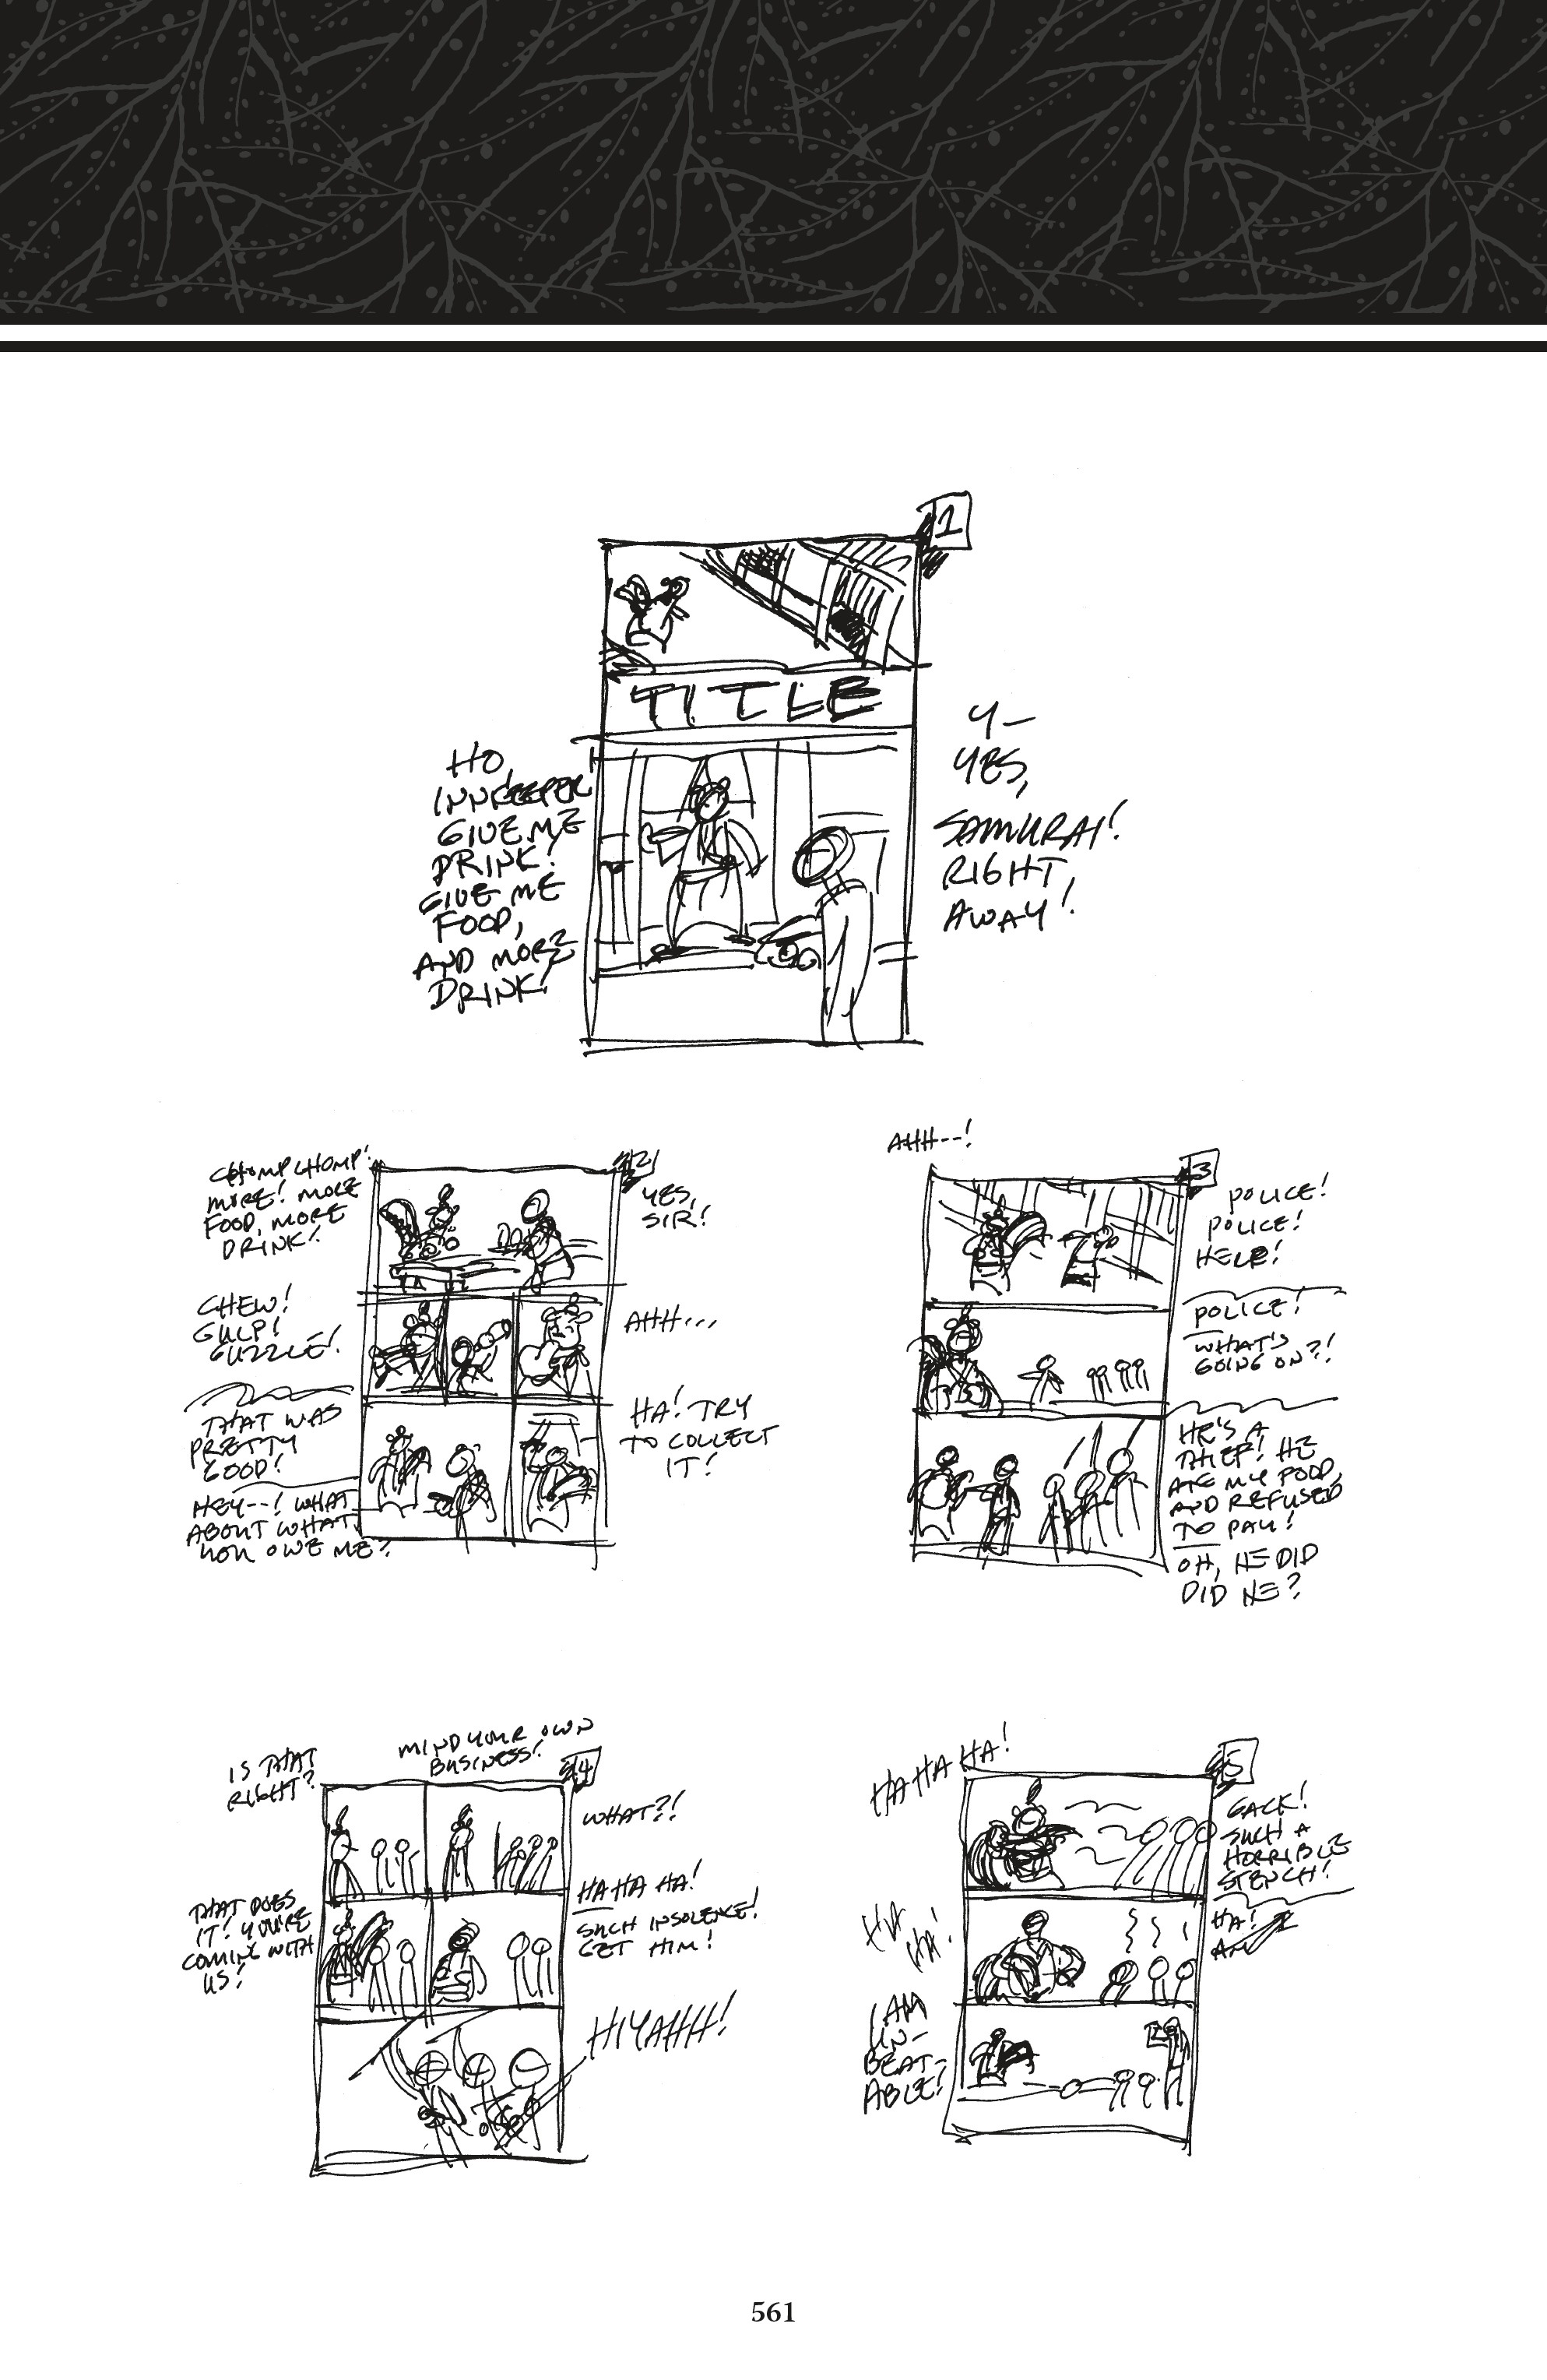 1
TITLE
HO,
INNKEEPER!
GIVE ME
DRINK!
GIVE ME
FOOD,
AND MORE
DRINK!
Y—
YES,
SAMURAI!
RIGHT
AWAY!
2
CHOMP CHOMP!
MORE! MORE
FOOD, MORE
DRINK!
YES,
SIR!
CHEW!
GULP!
GUZZLE!
AHH...
THAT WAS
PRETTY
GOOD!
HEY--! WHAT
ABOUT WHAT
YOU OWE ME?
HA! TRY
TO COLLECT
IT!
3
AHH--!
POLICE!
POLICE!
HELP!
POLICE!
WHAT'S
GOING ON?!
HE'S A
THIEF! HE
ATE MY FOOD,
AND REFUSED
TO PAY!
OH, HE DID
DID HE?
4
IS THAT
RIGHT?
MIND YOUR OWN
BUSINESS!
WHAT?!
THAT DOES
IT! YOU'RE
COMING WITH
US!
HA HA HA!
SUCH INSOLENCE!
GET HIM!
HIYAHH!
5
HA HA HA!
GACK!
SUCH A
HORRIBLE
STENCH!
HA
HA!
HA!
I AM
UN-
BEAT-
ABLE!
561